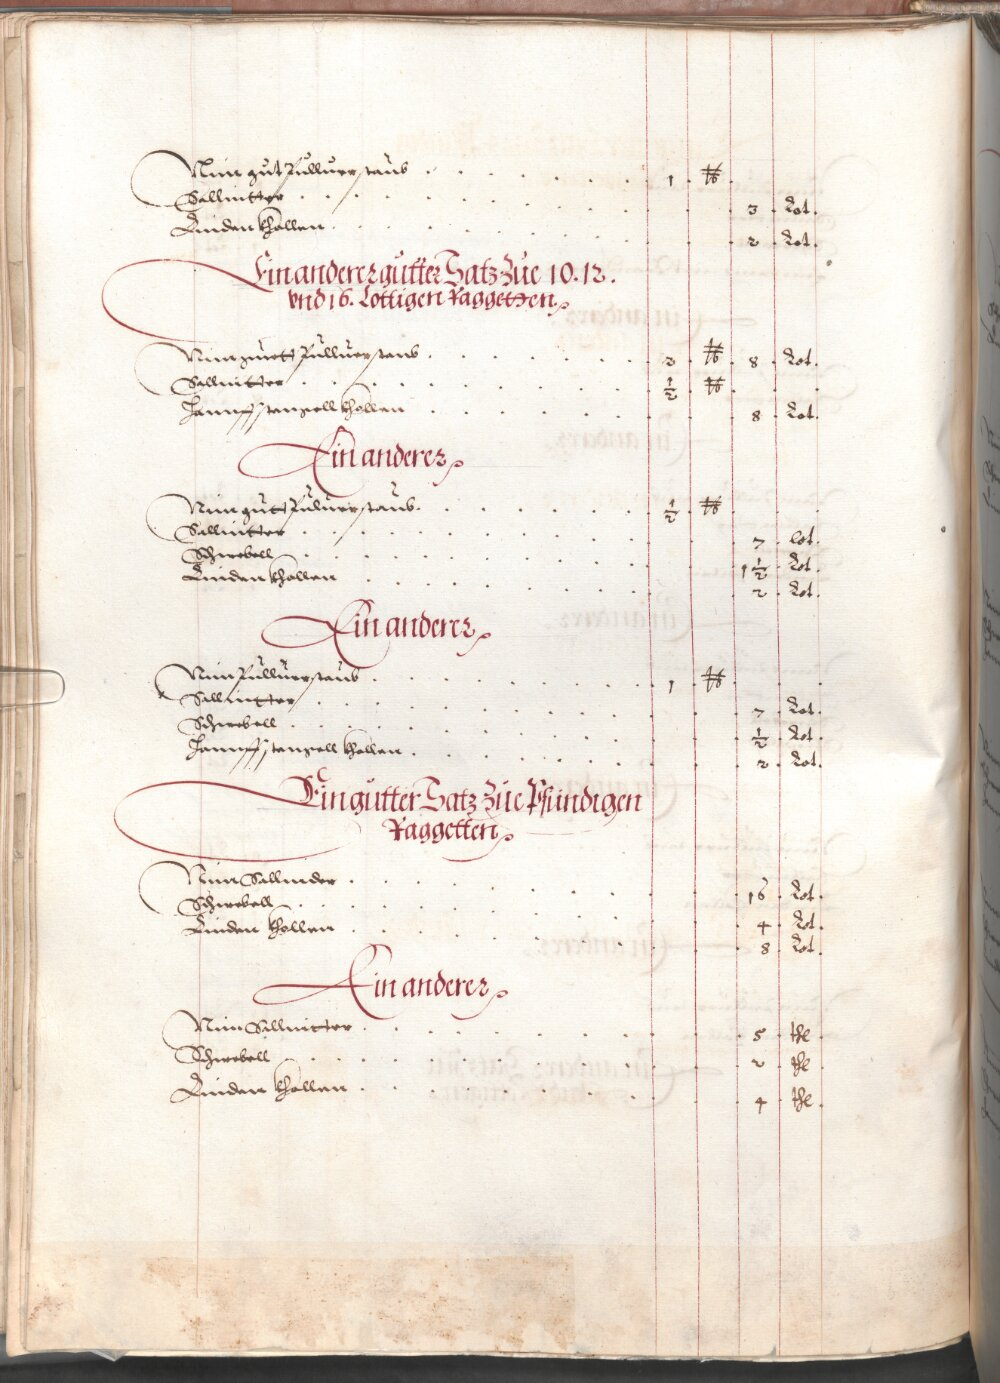 Nim gut Pulluerstaub . . . 1 ℔
Sallnitter . . . 3 Lot.
Linden Khollen . . . 2 Lot.
Ein anderer gutter Satz zue 10. 12.
vnd 16. Lottigen Raggetten
Nim guett Pulluerstaub . . . 3 ℔ 8 Lot.
Sallnitter . . . ½ ℔
Hannffstengell Khollen . . . 8 Lot.
Ein anderer
Nim guett Puluerstaub . . . ½ ℔
Sallnitter . . . 7 lot.
Schwebell . . . 1½ Lot.
Linden Khollen . . . 2 Lot.
Ein anderer
Nim Pulluerstaub . . . 1 ℔
Sallnitter . . . 7 Lot.
Schwebell . . . ½ Lot.
Hannffstengell Khollen . . . 2 Lot.
Ein gutter Satz zue Pfündigen
Raggetten
Nim Sallnider . . . 16 Lot.
Schwebell . . . 4 Lot.
Linden Khollen . . . 8 Lot.
Ein anderer
Nim Sallnitter . . . 5 thl.
Schwebell . . . 2 thl.
Linden Khollen . . . 4 thl.